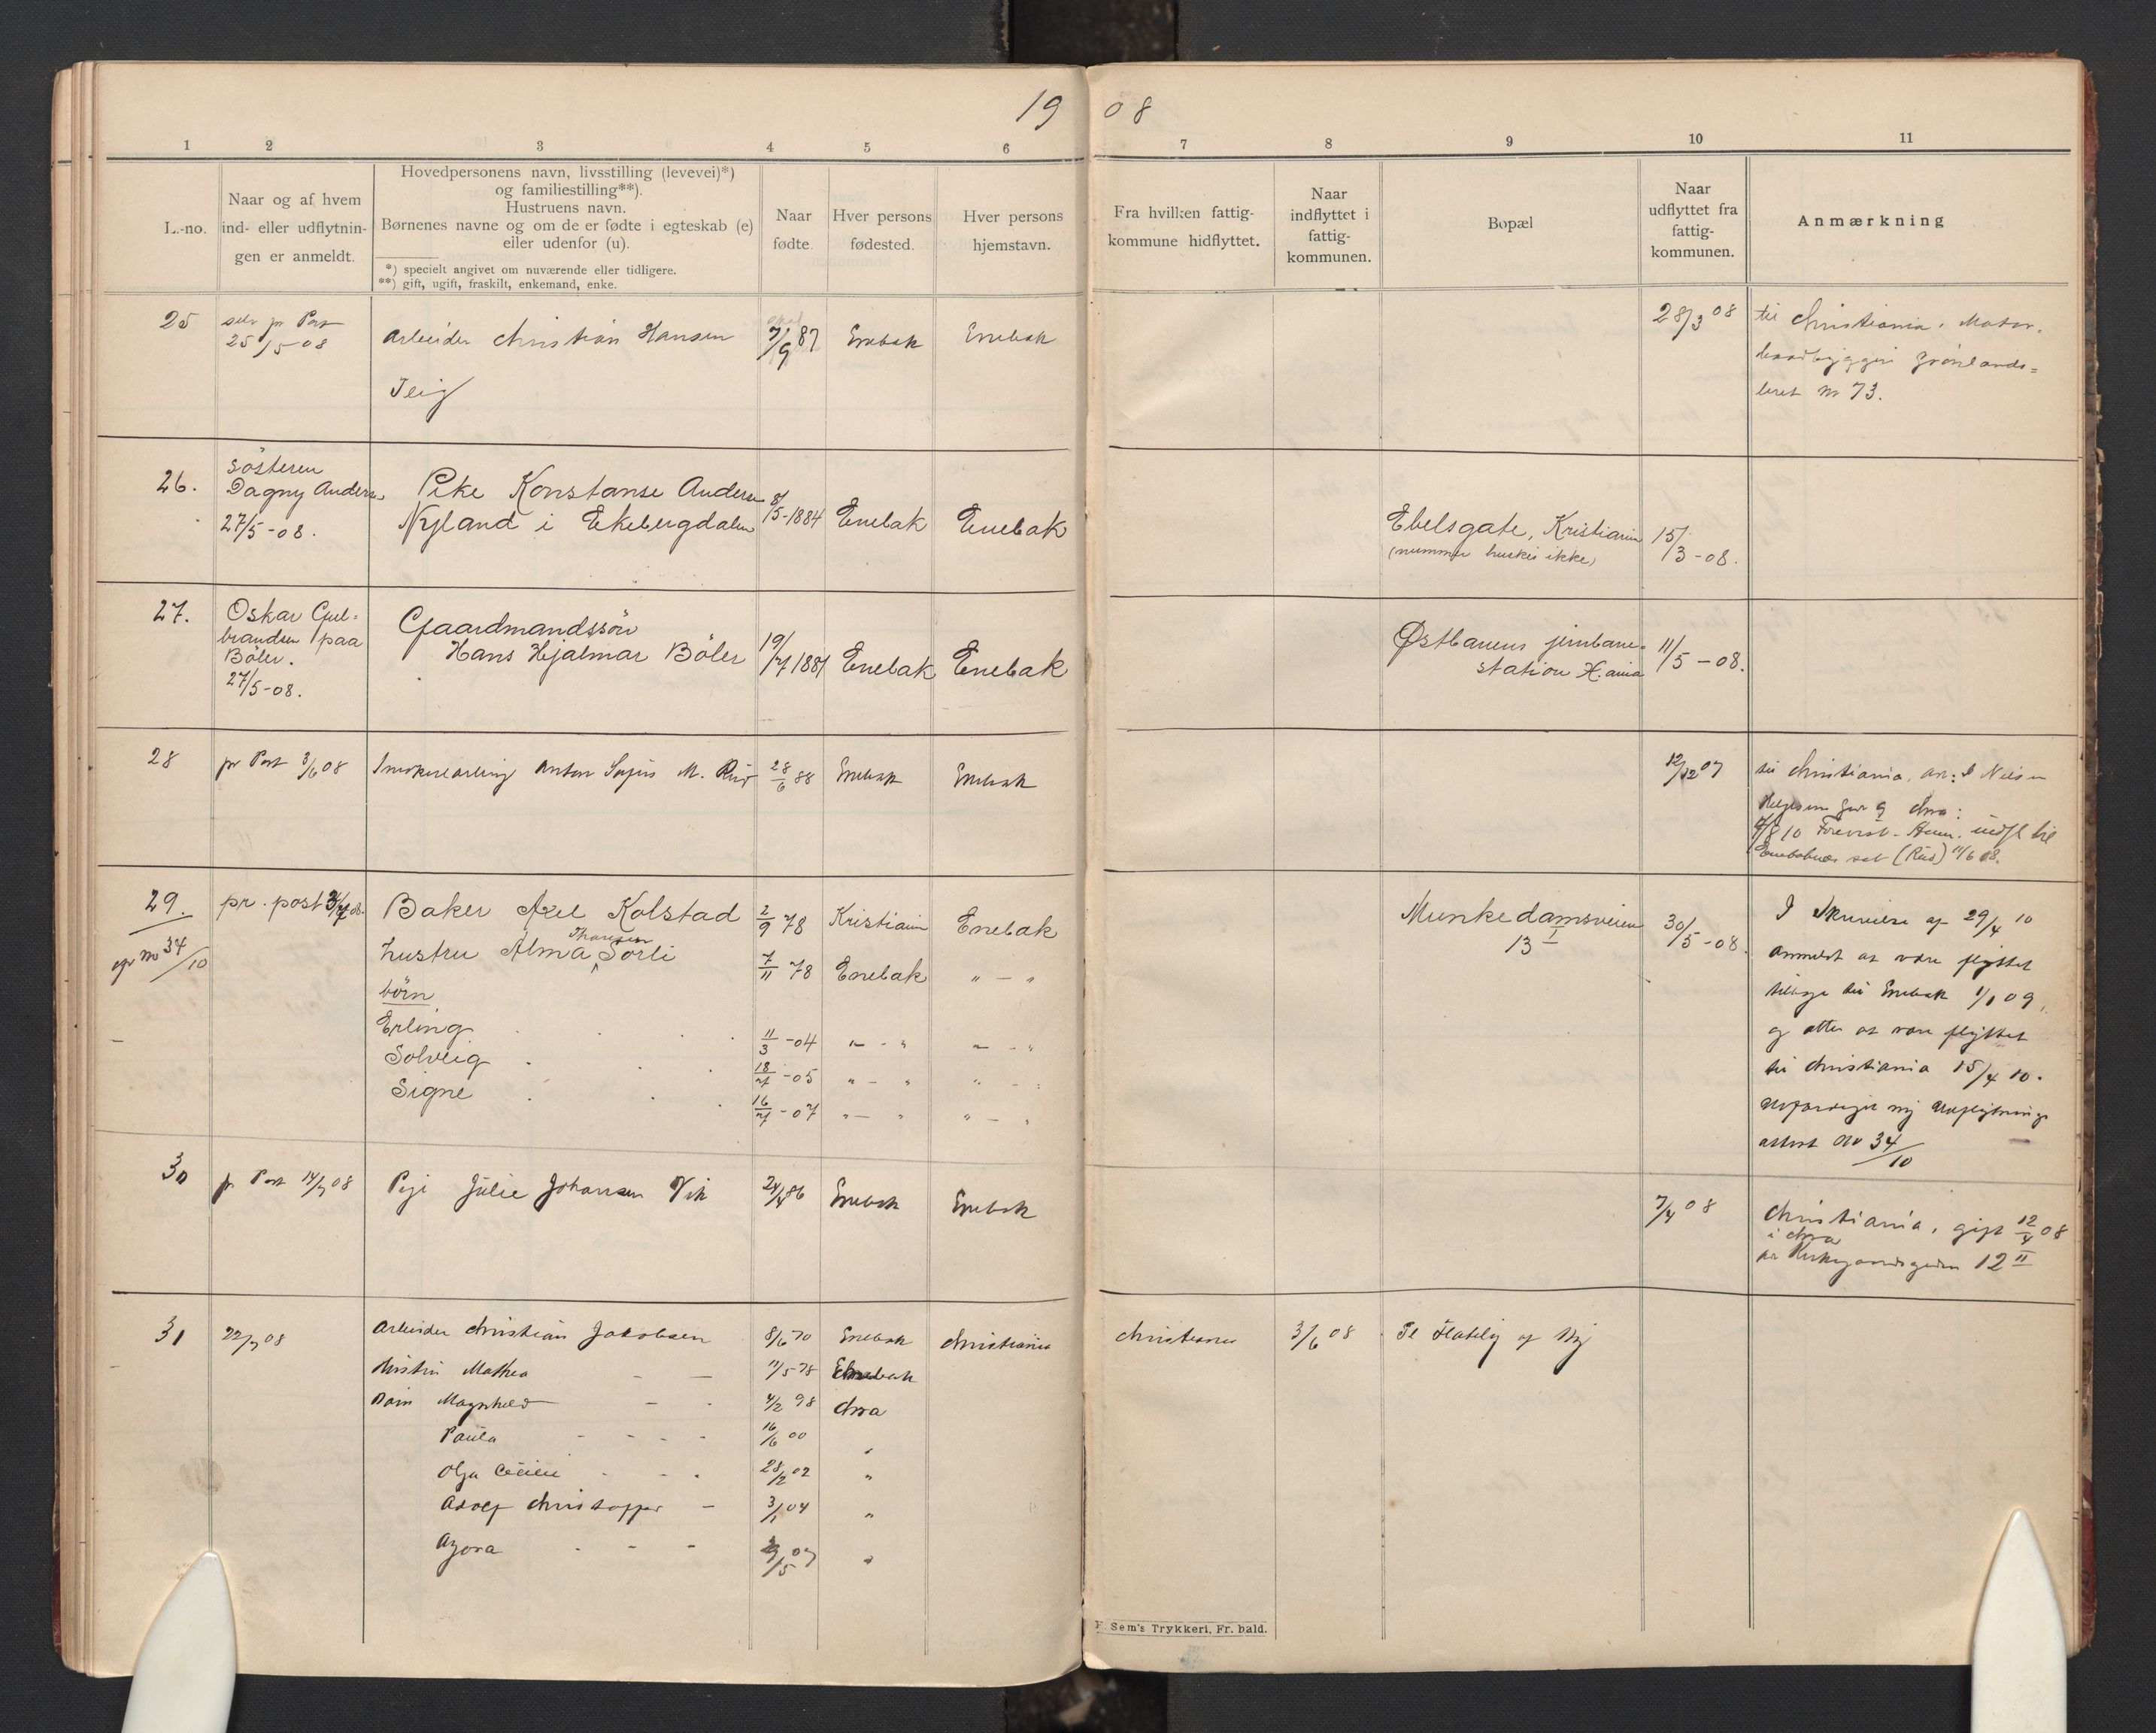 19 08
1 2 3 4 5 6 7 8 9 10 11
L.-no.
Naar og af hvem
ind- eller udflytnin-
gen er anmeldt.
Hovedpersonens navn, livsstilling (levevei)*)
og familiestilling**).
Hustruens navn.
Børnenes navne og om de er fødte i egteskab (e)
eller udenfor (u).
*) specielt angivet om nuværende eller tidligere.
**) gift, ugift, fraskilt, enkemand, enke.
Naar
fødte.
Hver persons
fødested.
Hver persons
hjemstavn.
Fra hvilken fattig-
kommune hidflyttet.
Naar
indflyttet i
fattig-
kommunen.
Bopæl
Naar
udflyttet fra
fattig-
kommunen.
Anmærkning
25 selv pr Post 25/5 08
Arbeider Christian Hansen
Teig
7/9 87 Enebak Enebak
28/3 08
til Christiania, Motor-
baadbyggeri Grønlands=
leret No 73.
26. Søsteren
Dagny Andersen
27/5-08.
Pike Konstanse Andersen
Nyland i Ekebergdalen
8/5-1884 Enebak Enebak
Ebelsgate, Kristiania
(nummer huskes ikke)
15/3-08.
27. Oskar Gul=
brandsen paa
Bøler.
27/5-08.
Gaardmandssøn
Hans Hjalmar Böler
19/7 1881 Enebak Enebak
Østbanens jernbane-
station K.ania
11/5-08.
28 pr Post 3/6 08
Anton M. Rud
28/6 88 Enebak Enebak
12/12 07
til Christiania,
Enebaknes (Rud) 11/6 08.
29. pr. post 3/7 08.
cfr No 34/10
Baker Axel Kolstad 2/9 78 Kristiania Enebak
Hustru Alma Thoresen Sörli 7/11 78 Enebak " — "
börn
Erling 11/3 -04 " - " " - "
Solveig 18/7 -05 " - " " - "
Signe 16/7 -07 " — " " — "
Munkedamsveien
13 I
30/5-08.
I Skrivelse af 29/4 10
anmeldt at være flyttet
tilbage til Enebak 1/1 09,
og atter at være flyttet
til Christiania 15/4 10.
Udfærdiget ny Udflytnings
attest No 34/10
30 pr Post 14/7 08
Pige Julie Johansen Vik
24/4 86 Enebak Enebak
7/4 08
Christiania, gift 12/4 08
i Chra
Kirkegaardsgaden 12 II
31 22/7 08
Arbeider Christian Jakobsen 8/6 70 Enebak Christiania
Christiania 3/6 08
Hustru Mathea - — 11/5 78 Enebak
Børn Magnhild — - 4/2 98 Chra
Paula - - - - 16/6 00 "
Olga Cecilie - - - 28/2 02 "
Adolf Christoffer - 3/1 04 "
Agora - - - /5 07 "
F. Sem's Trykkeri, Fr. hald.